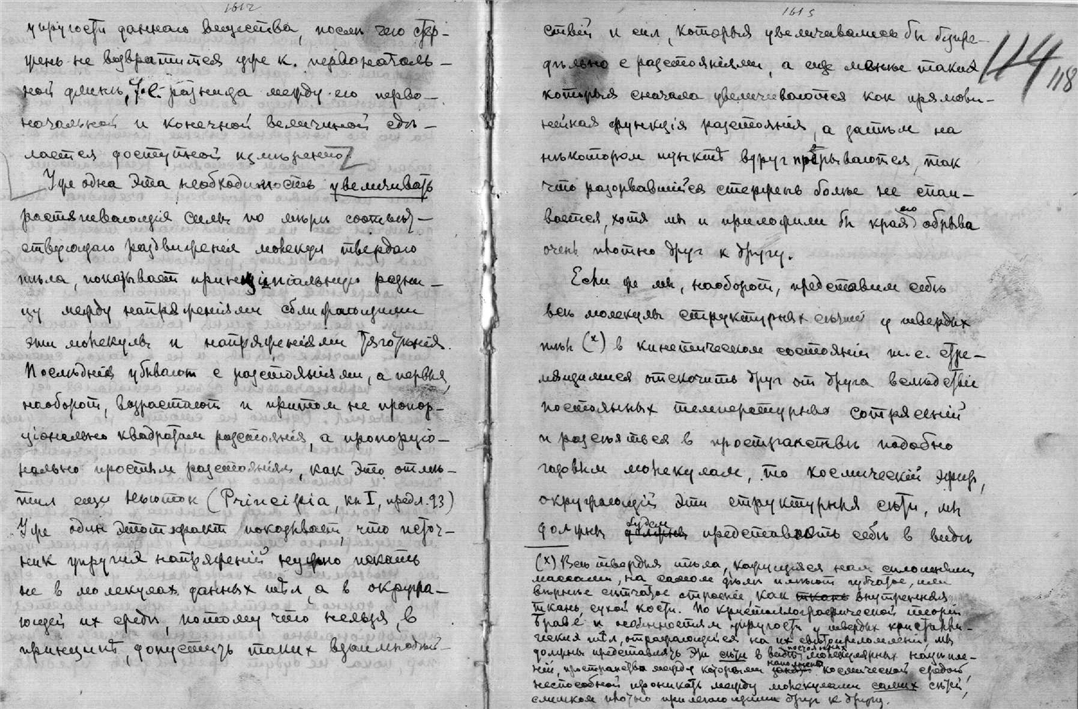 1612
упругости даннаго вещества, послѣ чего стер-
жень не возвратится уже к первоначаль-
ной длинѣ, и разница между его перво-
начальной и конечной величиной сдѣ-
лается доступной измѣренію
Уже одна эта необходимость увеличивать
растягивающія силы по мѣрѣ соотвѣт-
ствующаго раздвиженія молекул твердаго
тѣла, показывает принципіальную разни-
цу между напряженіями сближающими
эти молекулы и напряженіями тяготѣнія.
Послѣднія убывают с разстояніями, а первыя,
наоборот, возрастают и притом не пропор-
ціонально квадратам разстоянія, а пропорціо-
нально простым разстояніям, как это отмѣ-
тил еще Ньютон (Principia, кн I, предл. 93)
Уже один этот факт показывает, что источ-
ник упругих напряженій нужно искать
не в молекулах данных тѣл а в окружа-
ющей их средѣ, потому что нельзя в
принципѣ допустить таких взаимодѣй-
1613
114
118
ствій и сил, которыя увеличивались бы безпре-
дѣльно с разстояніями, а еще менѣе такия
которыя сначала увеличиваются как прямоли-
нейная функція разстоянія, а затѣм на
нѣкотором пунктѣ вдруг прерываются, так
что разорвавшійся стержень болѣе не спаи-
вается, хотя мы и приложили бы края его обрыва
очень плотно друг к другу.
Если же мы, наоборот, представим себѣ
всѣ молекулы структурных сѣтей у твердых
тѣл (х) в кинетическом состояніи т.е. стре-
мящимися отскочить друг от друга вслѣдствіе
постоянных температурных сотрясеній
и разсѣяться в пространствѣ подобно
газовым молекулам, то космическій эфир,
окружающій эти структурныя сѣти, мы
должны будем представлять себѣ в видѣ
(х) Всѣ твердыя тѣла, кажущіяся нам сплошными
массами, на самом дѣлѣ имѣют губчатое, или
вѣрнѣе сѣтчатое строеніе, как внутренняя
ткань сухой кости. По кристаллографической теоріи
Браве и особенностям упругости у твердых кристалли-
ческих тѣл, отражающейся на их свѣтопреломленіи, мы
должны представлять эти сѣти в видѣ постоянных молекулярных
пространства между которыми наполнены космической средой,
неспособной проникать между молекулами самих сѣтей,
слишком плотно прилегающими друг к другу.